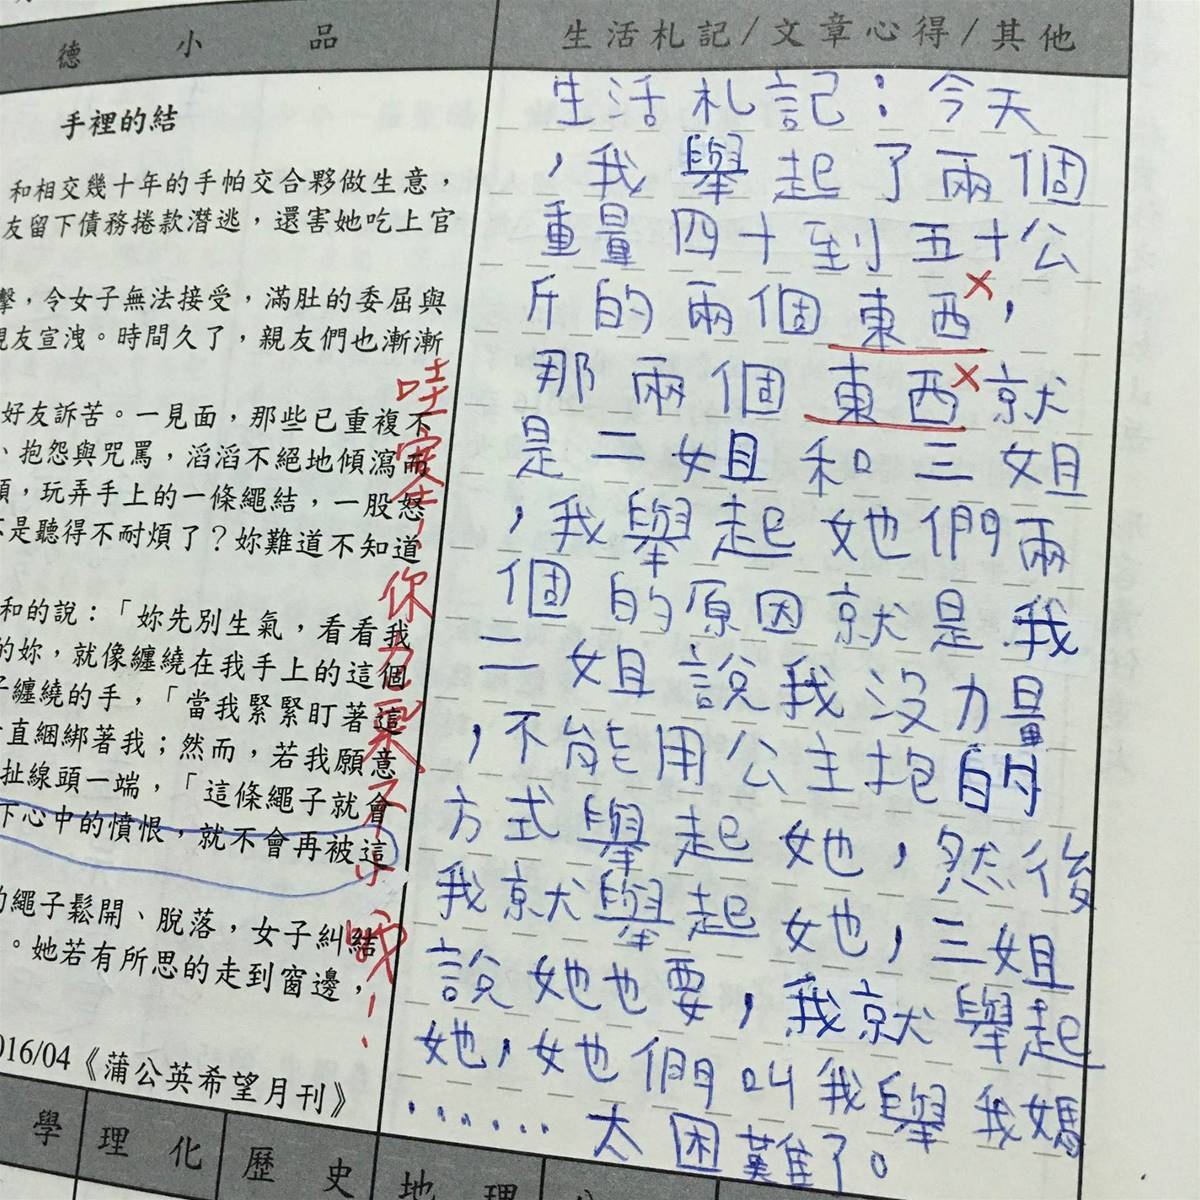 德小品
生活札記/文章心得/其他
手裡的結
和相交幾十年的手帕交合夥做生意，
友留下債務捲款潛逃，還害她吃上官
擊，令女子無法接受，滿肚的委屈與
親友宣洩。時間久了，親友們也漸漸
好友訴苦。一見面，那些已重複不
、抱怨與咒罵，滔滔不絕地傾瀉而
頭，玩弄手上的一條繩結，一股怒
不是聽得不耐煩了？妳難道不知道
和的說：「妳先別生氣，看看我
的妳，就像纏繞在我手上的這個
子纏繞的手，「當我緊緊盯著這
直綑綁著我；然而，若我願意
扯線頭一端，「這條繩子就會
下心中的憤恨，就不會再被這
的繩子鬆開、脫落，女子糾結
。她若有所思的走到窗邊，
016/04《蒲公英希望月刊》
生活札記：今天
，我舉起了兩個
重量四十到五十公
斤的兩個東西，
那兩個東西就
是二姐和三姐
，我舉起她們兩
個的原因就是我
二姐說我沒力量
，不能用公主抱的
方式舉起她，然後
我就舉起她，三姐
說她也要，我就舉起
她，她們叫我舉我媽
……太困難了。
哇塞！你力氣不小哦！
學 理化 歷史 地理